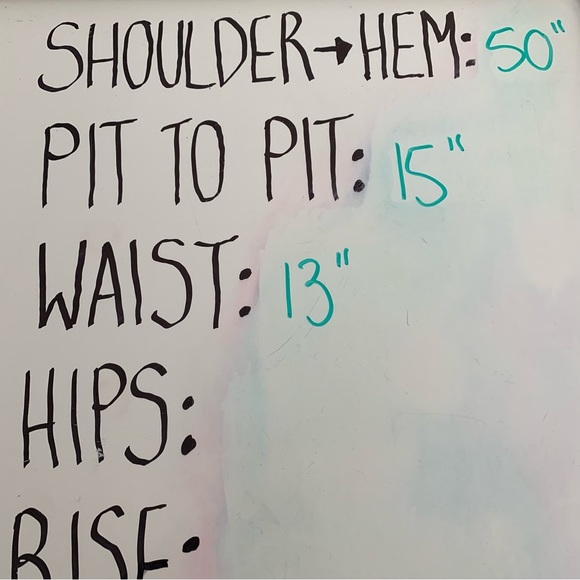 SHOULDER→HEM: 50"
PIT TO PIT: 15"
WAIST: 13"
HIPS:
RISE: